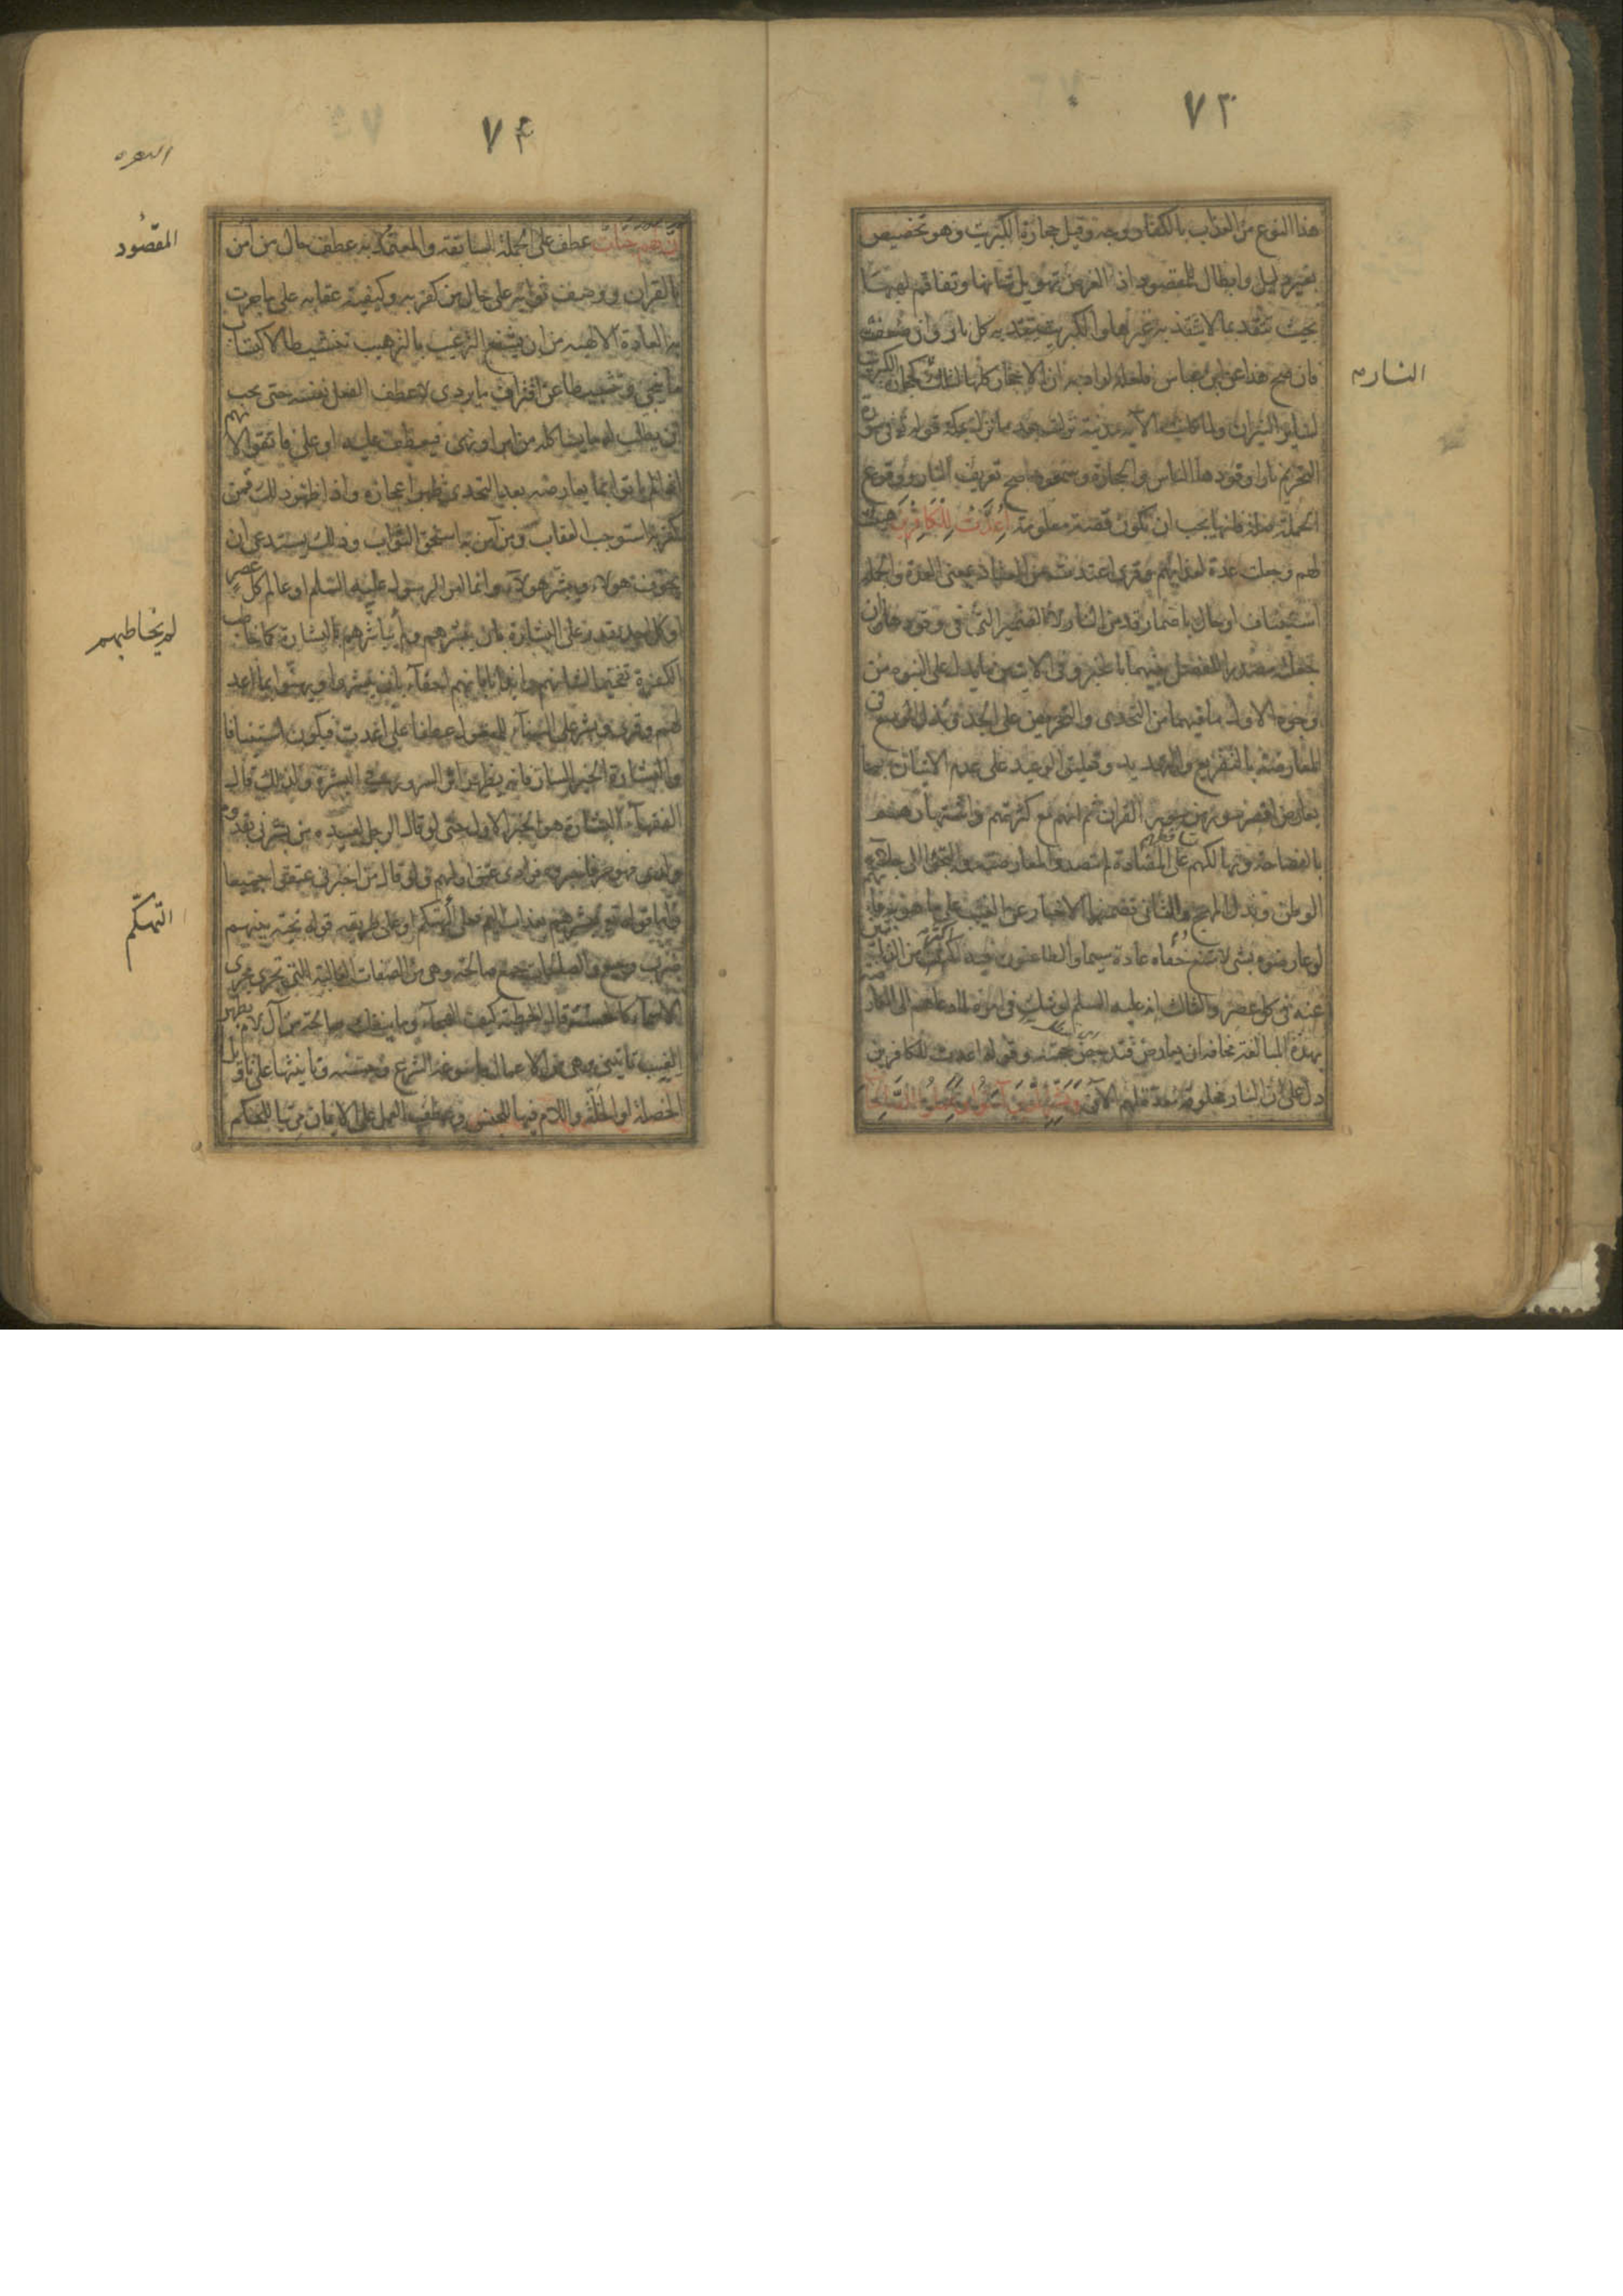 ٧٣
هذا النوع من العذاب بالكفار وجه وقيل حجارة الكبريت وهو تخصيص
بغير دليل وابطال للمقصود اذ الغرض تهويل شانها وتفاقم لهبها
بحيث تتقد بما لا يتقد به غيرها والكبريت يتقد به كل نار وان ضعفت
فان صح هذا عن ابن عباس فلعله اراد به ان الاحجار كلها لتلك كحجارة الكبريت
لسائر النيران ولما كانت الآية مدنية نزلت بعد ما نزل بمكة قوله تعالى في سورة
التحريم نارا وقودها الناس والحجارة وسمعوها صح تعريف النار ووقوع
الجملة صلة فانها يجب ان تكون قصة معلومة اُعِدَّتْ لِلْكَافِرِينَ هيئت
لهم وجعلت عدة لعذابهم وقرئ اعتدت من العتاد بمعنى العدة والجملة
استيناف او حال باضمار قد من النار لا الضمير الذي في وقودها وان
جعلته مصدرا للفصل بينهما بالخبر وفي الآيتين ما يدل على النبوة من
وجوه الاول ما فيهما من التحدي والتحريض على الجد وبذل الوسع في
المعارضة بالتقريع والتهديد وتعليق الوعيد على عدم الاتيان بما
يعارض اقصر سورة من سور القران ثم انهم مع كثرتهم واشتهارهم
بالفصاحة وتهالكهم على المضادة لم يتصدوا لمعارضته والتجئوا الى جلاء
الوطن وبذل المهج والثاني تضمنهما الاخبار عن الغيب على ما هو به فانهم
لو عارضوه بشئ لامتنع خفاؤه عادة سيما والطاعنون فيه اكثر من الذابين
عنه في كل عصر والثالث انه عليه السلم لو شك في امره لما دعاهم الى المعارضة
بهذه المبالغة مخافة ان يعارض فتدحض حجته وقوله اعدت للكافرين
دل على ان النار مخلوقة معدة لهم الآن وَبَشِّرِ الَّذِينَ آمَنُوا وَعَمِلُوا الصَّالِحَاتِ
النار
٧٤
البقره
ان لهم جنات عطف على الجملة السابقة والمقصود عطف حال من امن
بالقران ووصف ثوابه على حال من كفر به وكيفية عقابه على ما جرت
به العادة الالهية من ان يشفع الترغيب بالترهيب تنشيطا لاكتساب
ما ينجي وتثبيطا عن اقتراف ما يردي لا عطف الفعل نفسه حتى يجب
ان يطلب له ما يشاكله من امر او نهي فيعطف عليه او على فاتقوا لانهم
اذا لم ياتوا بما يعارضه بعد التحدي ظهر اعجازه واذا ظهر ذلك فمن
كفر به استوجب العقاب ومن آمن به استحق الثواب وذلك يستدعي ان
يخوف هولاء ويبشر هولاء وانما امر الرسول عليه السلم او عالم كل عصر
او كل احد يقدر على البشارة بان يبشرهم ولم يخاطبهم بالبشارة كما خاطب
الكفرة تفخيما لشانهم وايذانا بانهم احقاء بان يبشروا ويهنئوا بما اعد
لهم وقرئ وبشر على البناء للمفعول عطفا على اعدت فيكون استينافا
والبشارة الخبر السار فانه يظهر اثر السرور في البشرة ولذلك قال
الفقهاء البشارة هو الخبر الاول حتى لو قال الرجل لعبيده من بشرني بقدوم
ولدي فهو حر فاخبروه فرادى عتق اولهم ولو قال من اخبرني عتقوا جميعا
واما قوله تعالى فبشرهم بعذاب اليم فعلى التهكم او على طريقة قوله تحية بينهم
ضرب وجيع والصالحات جمع صالحة وهي من الصفات الغالبة التي تجري مجرى
الاسماء كالحسنة قال الحطيئة كيف الهجاء وما ينفك صالحة من آل لام بظهر
الغيب تاتيني وهي من الاعمال ما سوغه الشرع وحسنه وتانيثها على تاويل
الخصلة او الخلة واللام فيها للجنس وعطف العمل على الايمان مرتبا للحكم
المقصود
لم يخاطبهم
التهكم